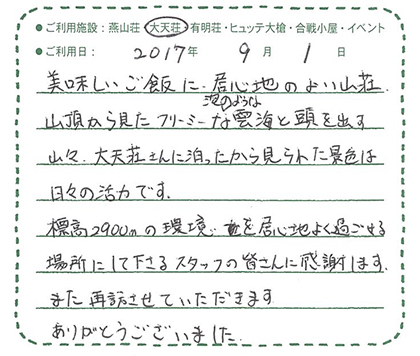 ●ご利用施設：燕山荘 大天荘 有明荘・ヒュッテ大槍・合戦小屋・イベント
●ご利用日： 2017年 9月 1日
美味しいご飯に、居心地のよい山荘、
泡のような
山頂から見たフリーミーな雲海と頭を出す
山々、大天荘さんに泊ったから見られた景色は
日々の活力です。
標高2900mの環境、を居心地よく過ごせる
場所にして下さるスタッフの皆さんに感謝します。
また再訪させていただきます
ありがとうございました。